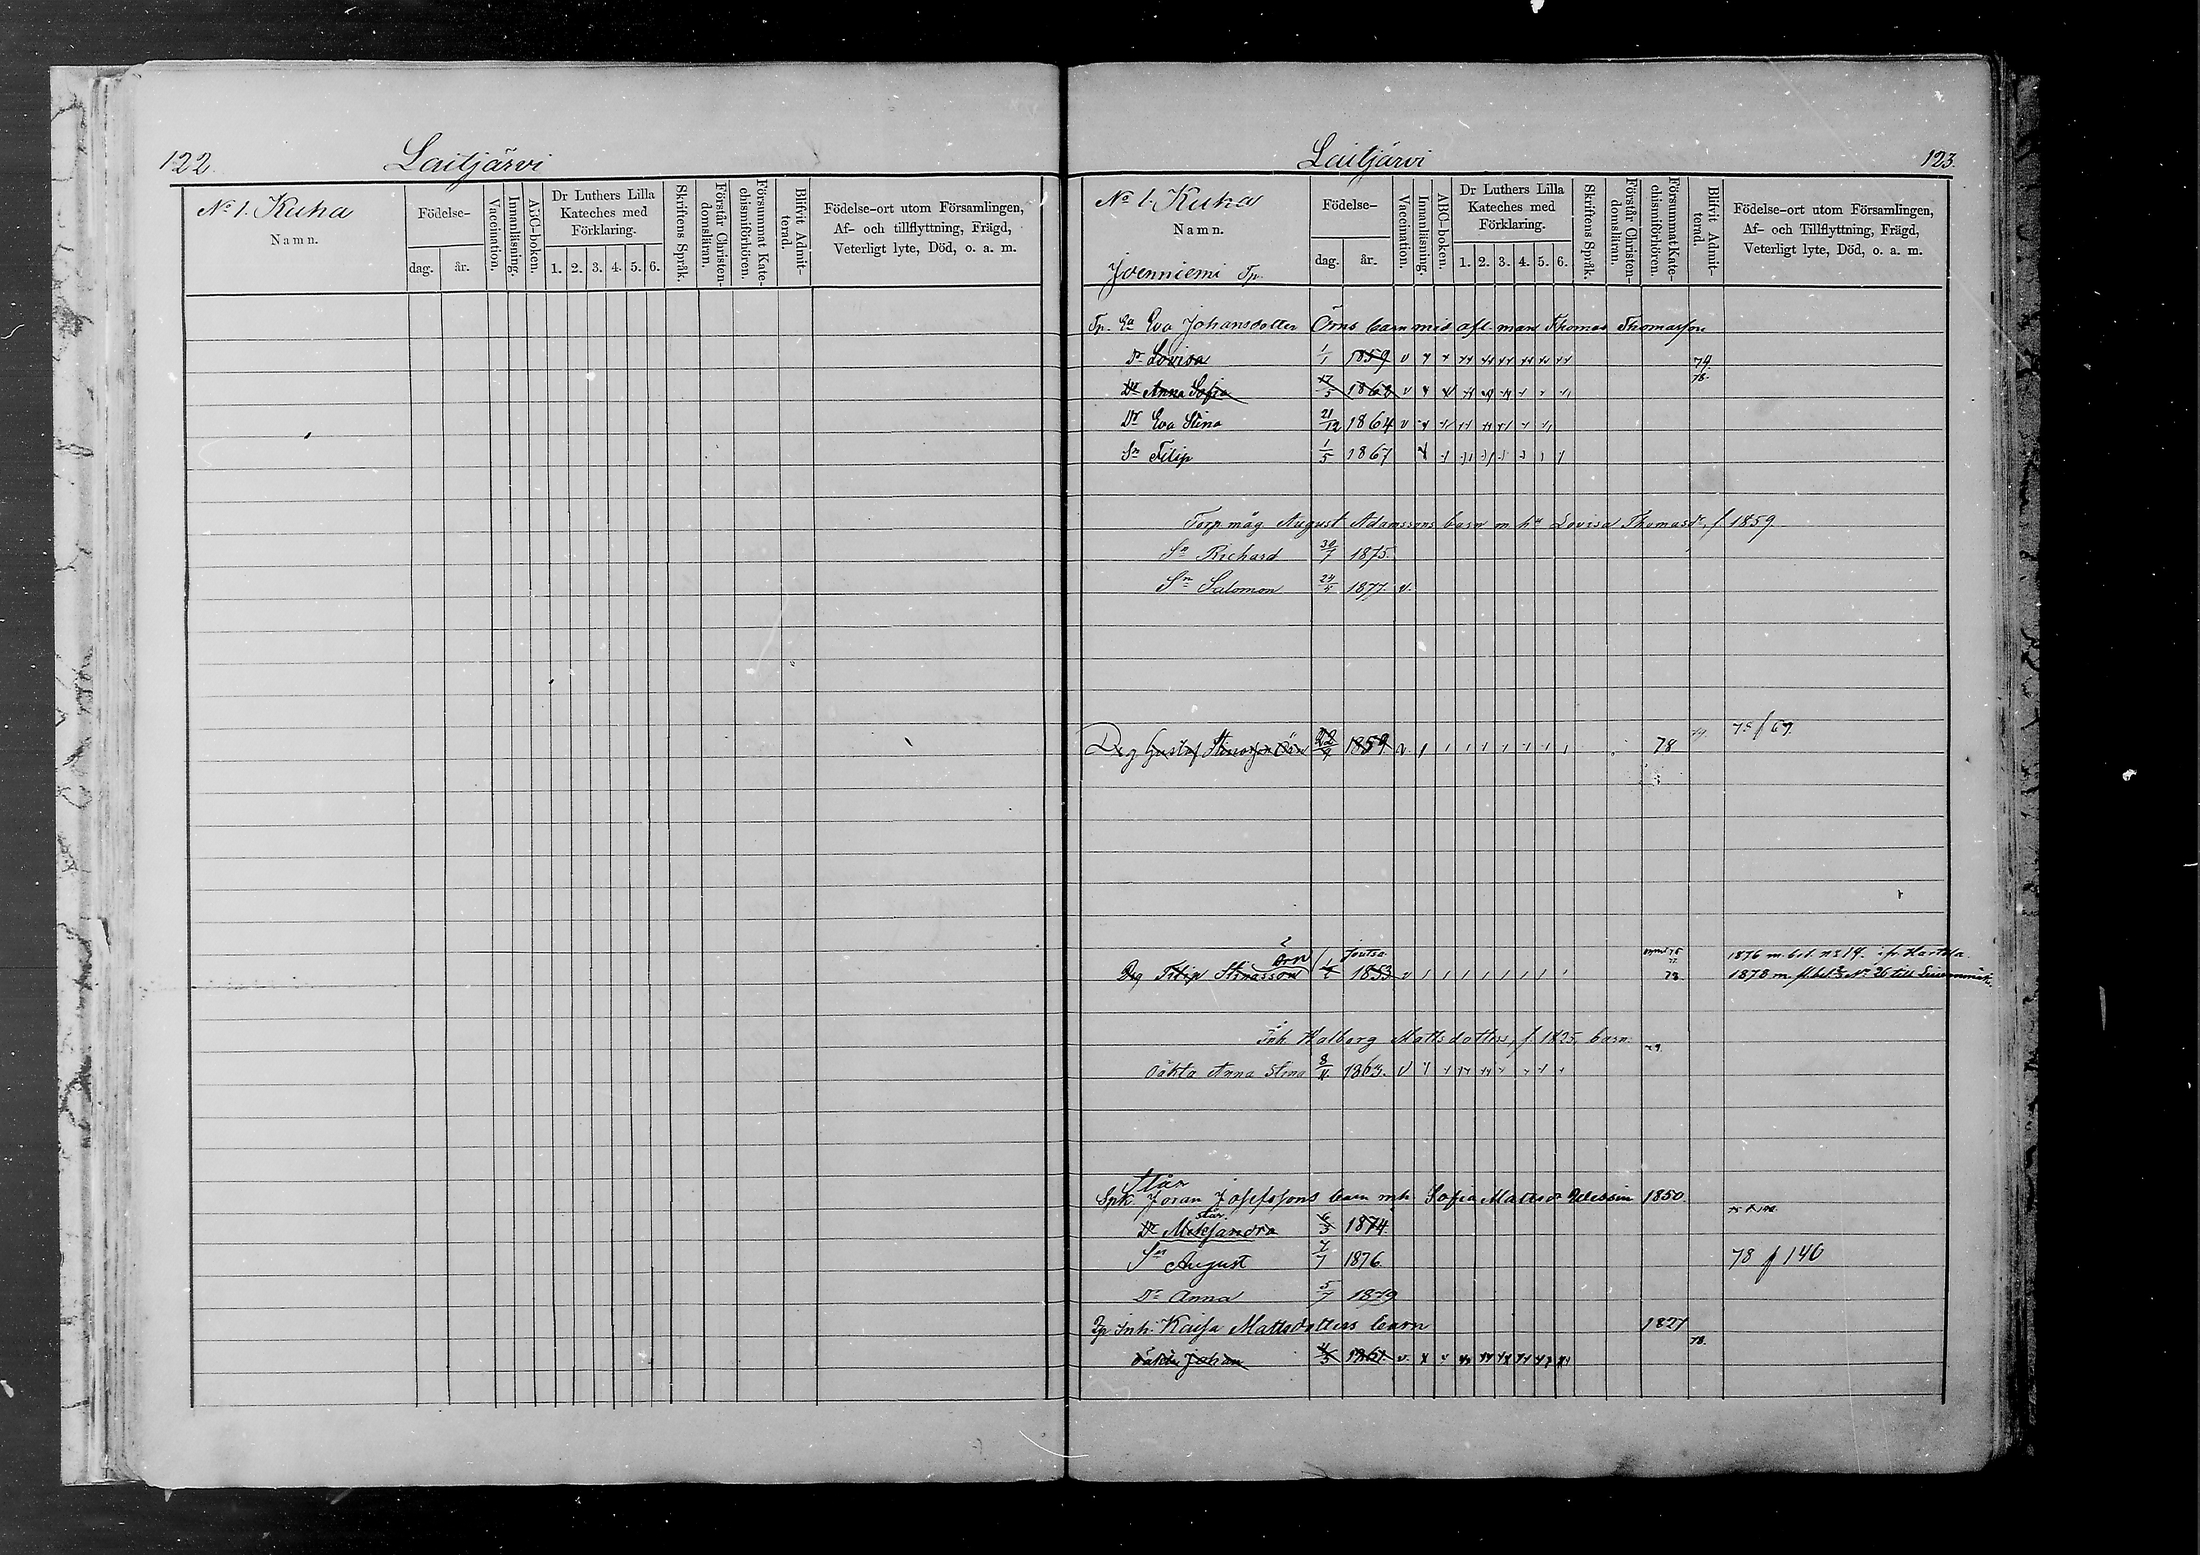 122.
Laitjärvi
No 1. Kuha
Namn.
Födelse-
dag.
år.
Vaccination.
Innanläsning.
ABC-boken.
Dr Luthers Lilla
Kateches med
Förklaring.
1. 2. 3. 4. 5. 6.
Skriftens Språk.
Förstår Christen-
domsläran.
Försummat Kate-
chismiförhören.
Blifvit Admit-
terad.
Födelse-ort utom Församlingen,
Af- och tillflyttning, Frägd,
Veterligt lyte, Död, o. a. m.
Laitjärvi
123.
No 1. Kuha
Namn.
Joenniemi Tp.
Födelse-
dag.
år.
Vaccination.
Innanläsning.
ABC-boken.
Dr Luthers Lilla
Kateches med
Förklaring.
1. 2. 3. 4. 5. 6.
Skriftens Språk.
Förstår Christen-
domsläran.
Försummat Kate-
chismiförhören.
Blifvit Admit-
terad.
Födelse-ort utom Församlingen,
Af- och Tillflyttning, Frägd,
Veterligt lyte, Död, o. a. m.
Tp. Ea Eva Johansdotter Örns barn mid afl man Thomas Thomasson
Dr Lovisa 1/1 1859 v 74.
Dr Anna Sofia 17/5 1860 v 78.
Dr Eva Stina 21/12 1864 v
Sn Filip 1/5 1867
Torp.måg August Adamssons barn m hu Lovisa Thomasdr, f 1859
Sn Richard 30/7 1875.
Sn Salomon 24/5 1877. v.
Drg Gustaf Stinasson Örn 22/9 1859 v. 78 79. 75 f 67.
Örn Joutsa 1876 m. bet. n 219. ifr Hartola
Drg Filip Stinasson 1853 v 78. 1878 m fl. bet. No 26 till
Inh Walborg Mattsdotters, f 1825, barn 79
Oäkta Anna Stina 8/11 1863. v
Stär
Spk. Joran Josefssons barn mh Sofia Mattsdr 1850.
stär
Dr Aleksandra 6/3 1874.
Sn August 7/7 1876 78 f 140
Dr Anna 5/7 1879
Inh. Kaisa Mattsdotters barn 1827 78.
oäkta Johan 4/5 1861. v.